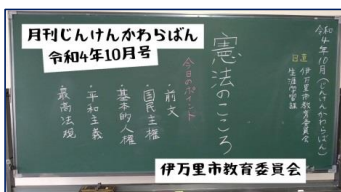 月刊じんけんかわらばん
令和4年10月号
令和4年10月(じんけんかわらばん)
日直
伊万里市教育委員会
生涯学習課
憲法のこころ
今日のポイント
・前文
・国民主権
・基本的人権
・平和主義
・最高法規
伊万里市教育委員会